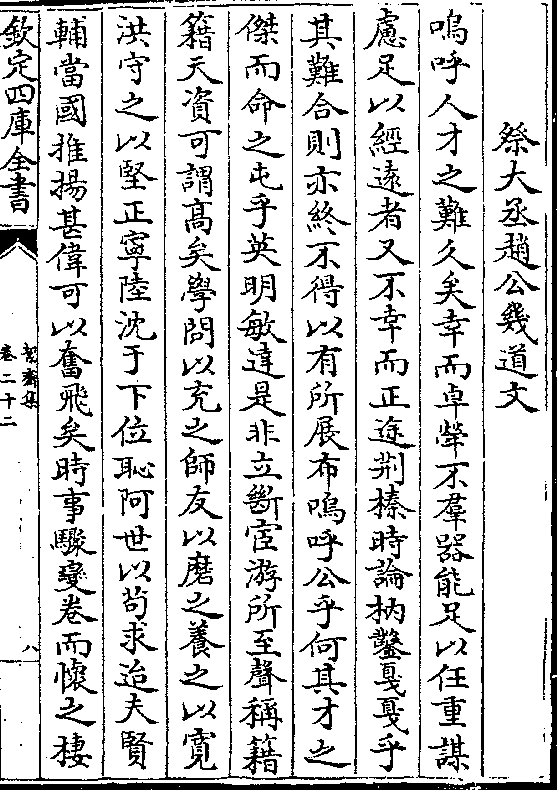 祭大丞趙公幾道文
嗚呼人才之難久矣幸而卓犖不羣器能足以任重謀
慮足以經遠者又不幸而正途荆榛時論枘鑿戛戛乎
其難合則亦終不得以有所展布嗚呼公乎何其才之
傑而命之屯乎英明敏達是非立斷宦游所至聲稱籍
籍天資可謂高矣學問以充之師友以磨之養之以寛
洪守之以堅正寧陸沈于下位恥阿世以苟求迨夫賢
輔當國推揚甚偉可以奮飛矣時事驟變卷而懷之棲
欽定四庫全書
絜齋集
卷二十二
八